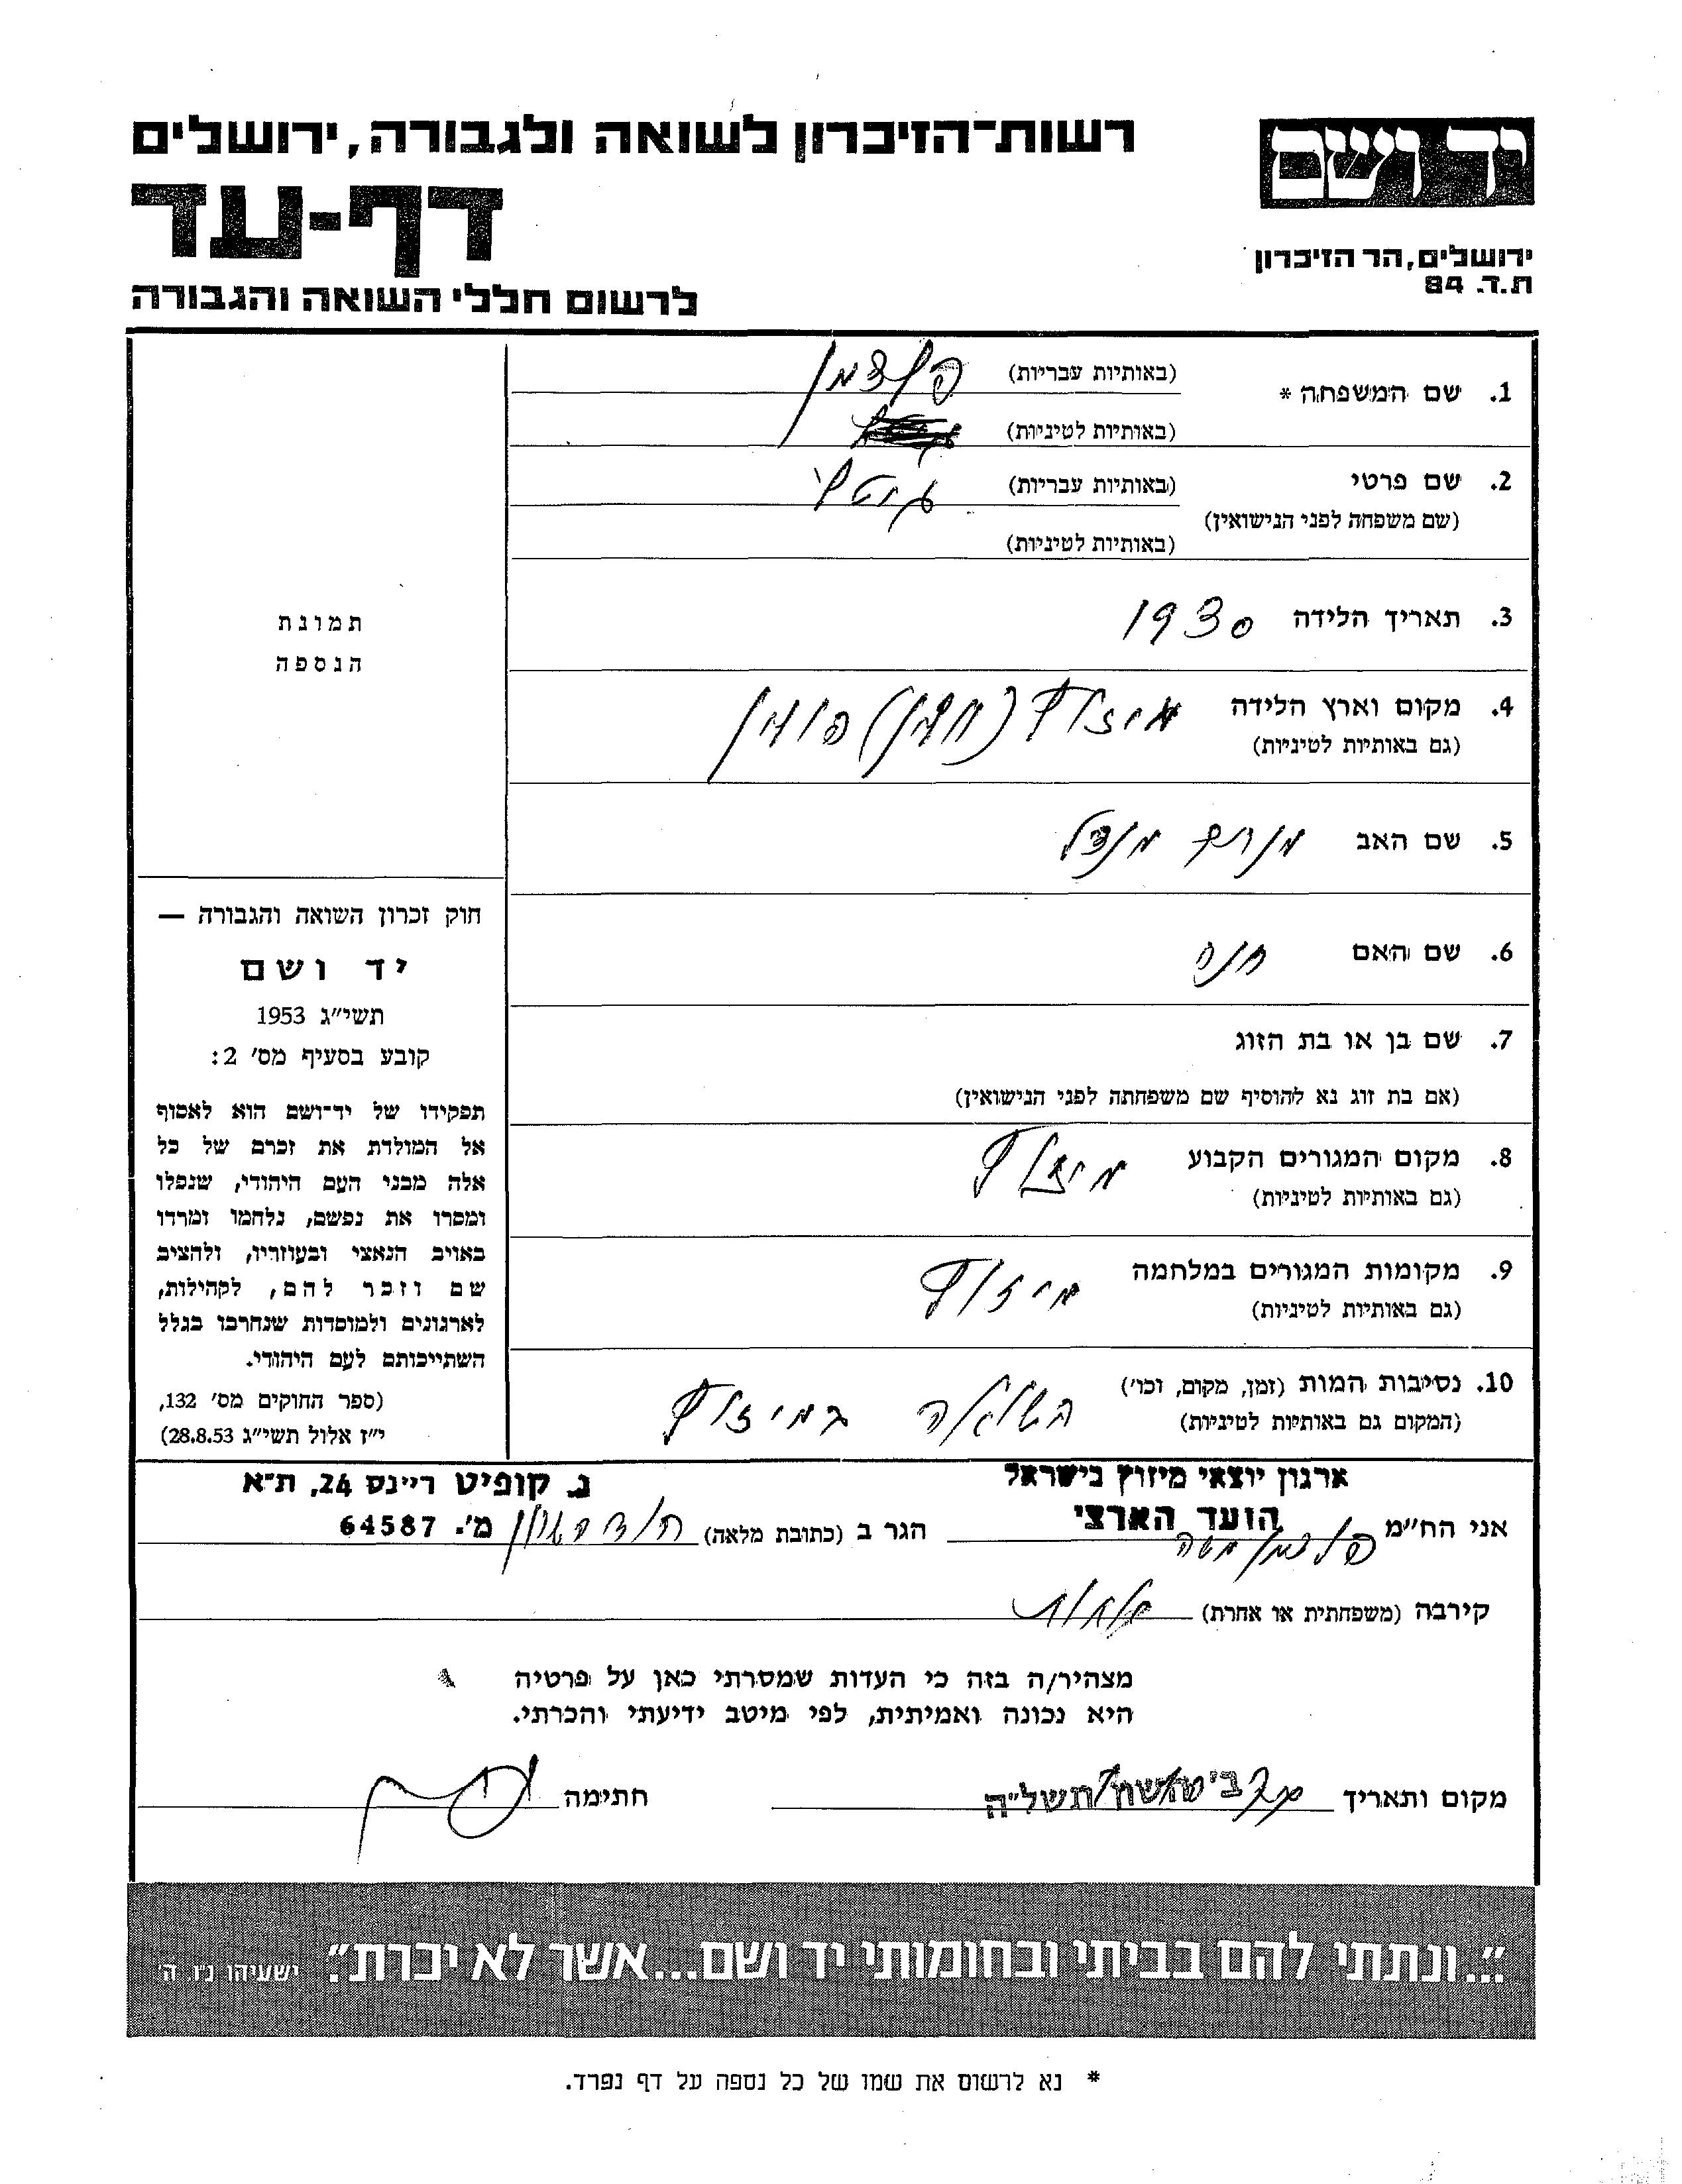 רשות־הזיכרון לשואה ולגבורה, ירושלים
יד ושם
דף-עד
ירושלים, הר הזיכרון
ת.ד. 84
לרשום חללי השואה והגבורה
1. שם המשפחה * (באותיות עבריות)
(באותיות לטיניות)
2. שם פרטי (באותיות עבריות)
(שם משפחה לפני הנישואין)
(באותיות לטיניות)
3. תאריך הלידה 1930
תמונת
הנספה
4. מקום וארץ הלידה
(גם באותיות לטיניות)
5. שם האב מנדל
6. שם האם חנה
7. שם בן או בת הזוג
(אם בת זוג נא להוסיף שם משפחתה לפני הנישואין)
8. מקום המגורים הקבוע
(גם באותיות לטיניות)
9. מקומות המגורים במלחמה מיזוץ
(גם באותיות לטיניות)
10. נסיבות המות (זמן, מקום, וכו') השואה במיזוץ
(המקום גם באותיות לטיניות)
חוק זכרון השואה והגבורה —
יד ושם
תשי״ג 1953
קובע בסעיף מס' 2:
תפקידו של יד־ושם הוא לאסוף
אל המולדת את זכרם של כל
אלה מבני העם היהודי, שנפלו
ומסרו את נפשם, נלחמו ומרדו
באויב הנאצי ובעוזריו, ולהציב
שם וזכר להם, לקהילות,
לארגונים ולמוסדות שנחרבו בגלל
השתייכותם לעם היהודי.
(ספר החוקים מס' 132,
י״ז אלול תשי״ג 28.8.53)
ארגון יוצאי מיזוץ בישראל
הועד הארצי
נ. קופיט ריינס 24, ת״א
מ'. 64587
אני הח״מ משה הגר ב (כתובת מלאה) הוד השרון
קירבה (משפחתית או אחרת)
מצהיר/ה בזה כי העדות שמסרתי כאן על פרטיה
היא נכונה ואמיתית, לפי מיטב ידיעתי והכרתי.
מקום ותאריך תשל״ה חתימה
״...ונתתי להם בביתי ובחומותי יד ושם...אשר לא יכרת.״ ישעיהו נ״ו, ה'
* נא לרשום את שמו של כל נספה על דף נפרד.